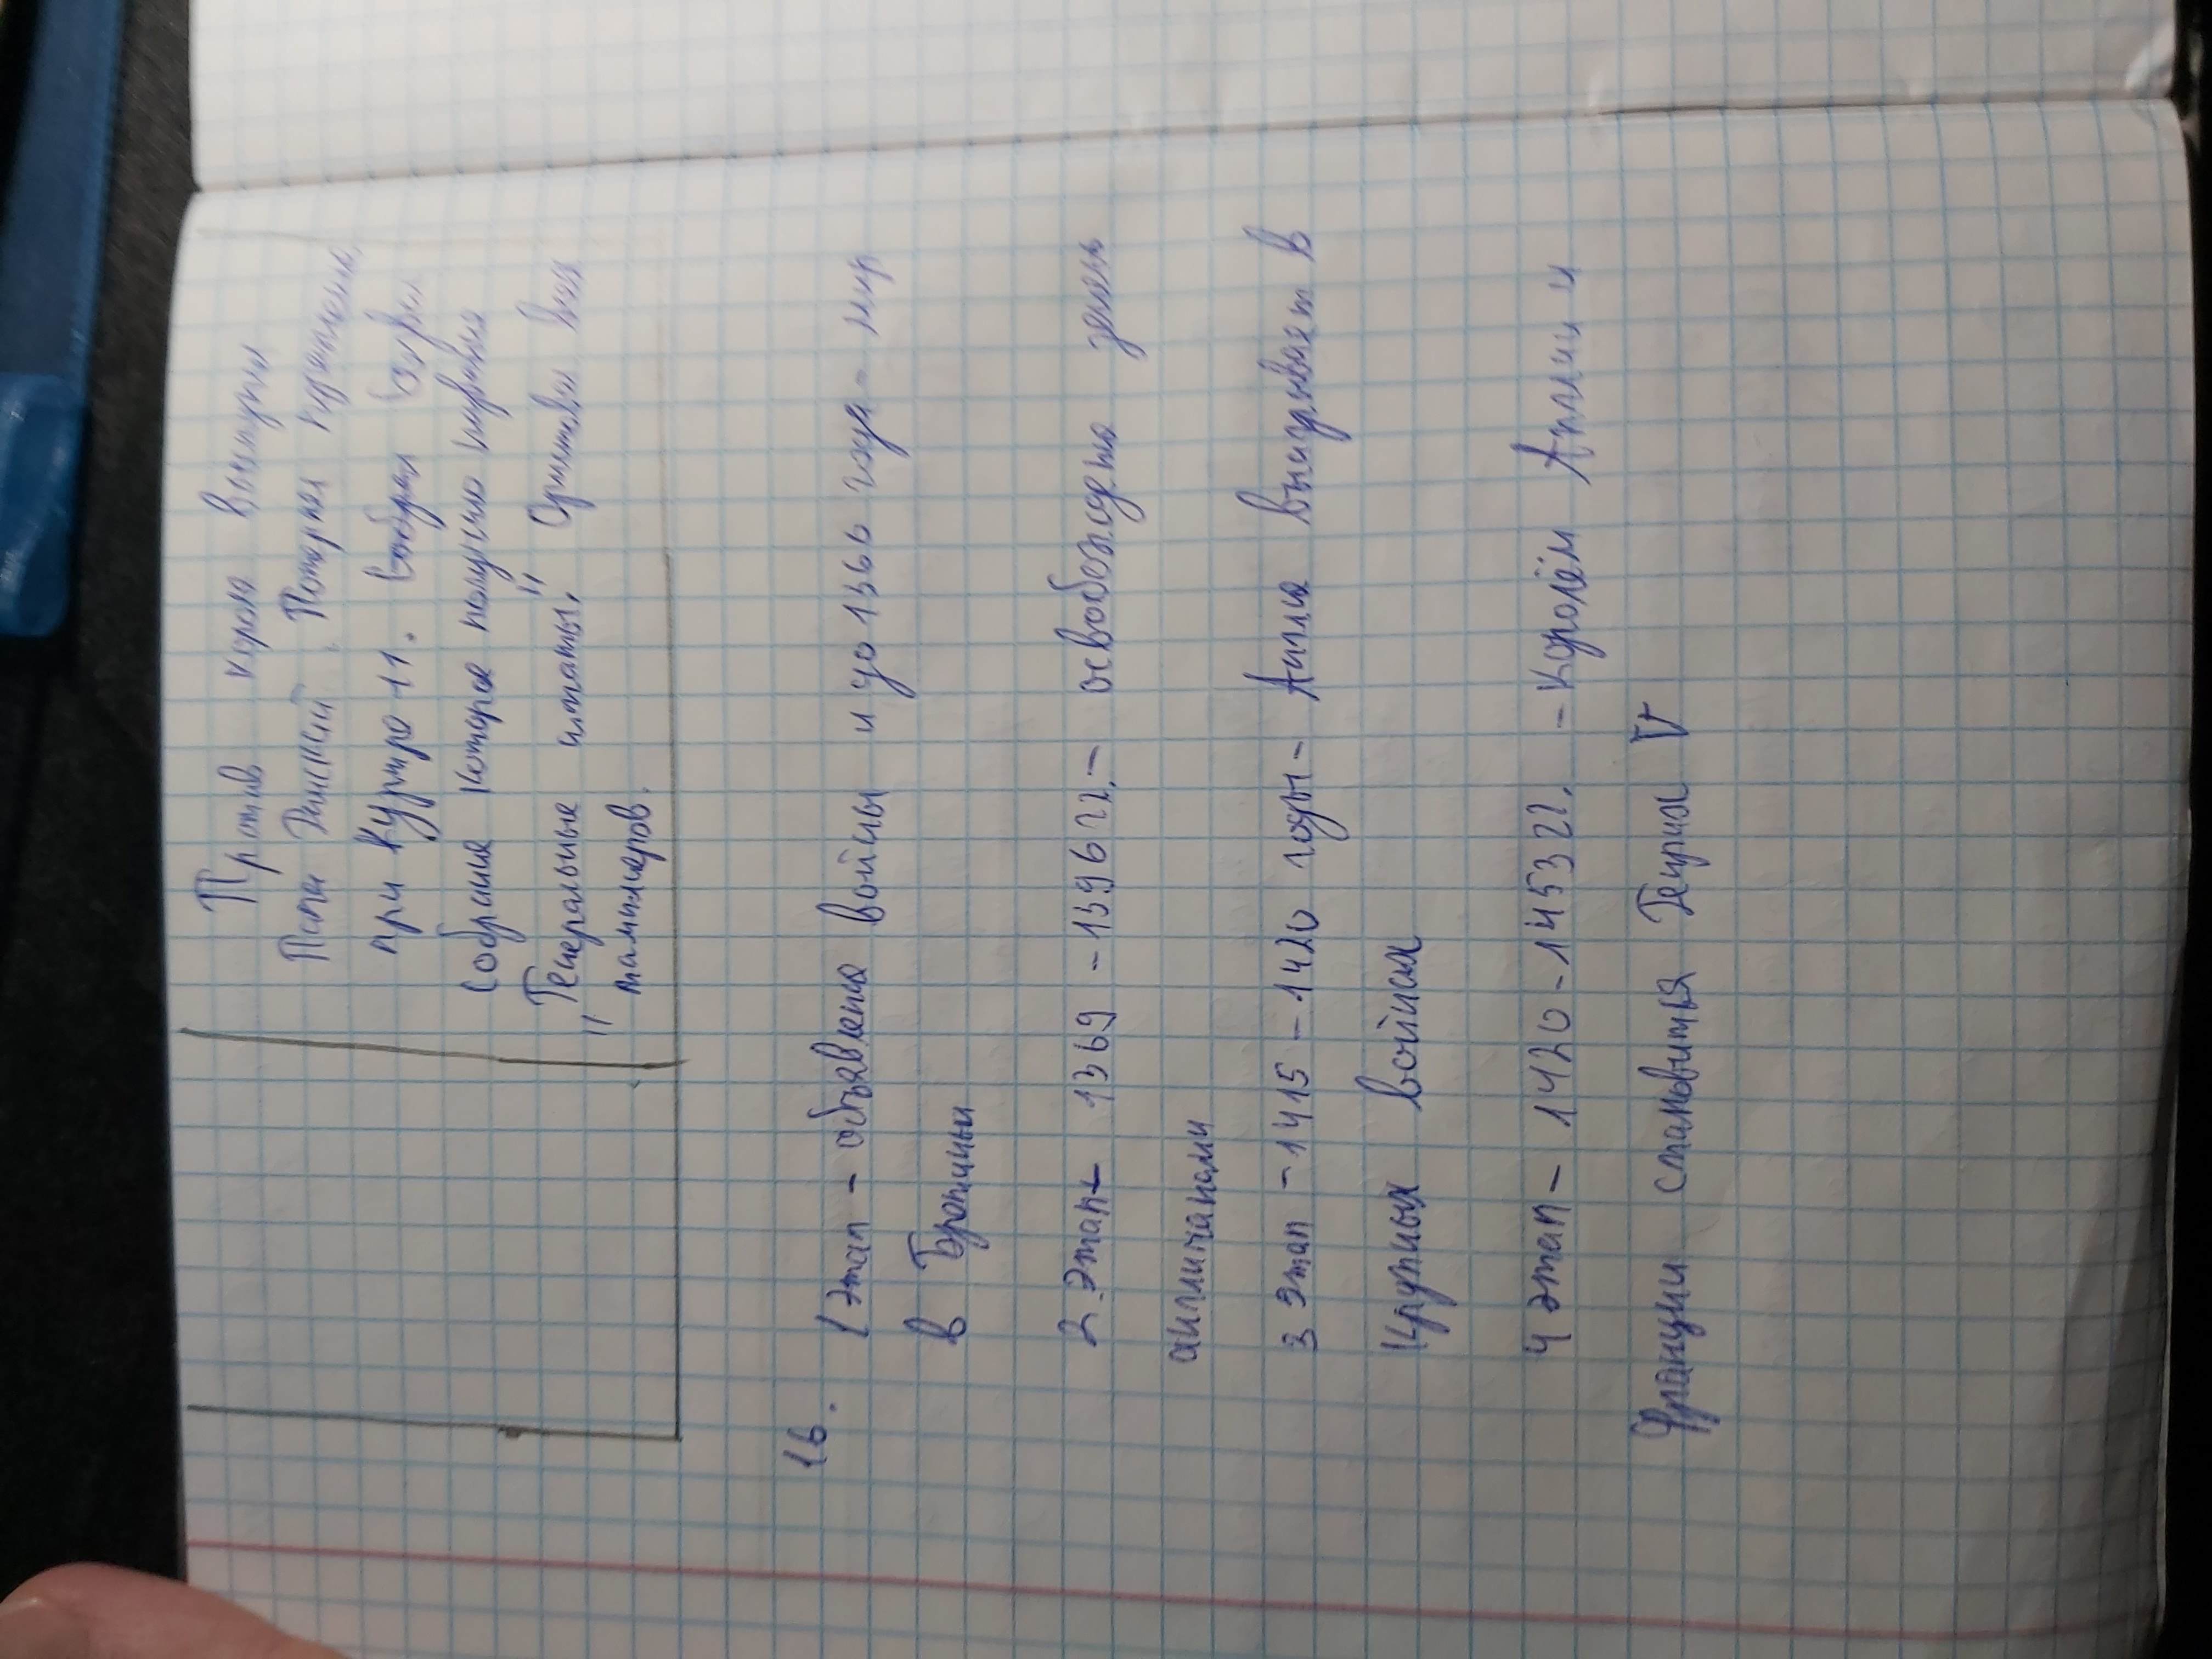 Против короля выступил
Папа Римский. Потерпел поражение
при Куртре 11. Вообрал
собрание которое получило название
"Генеральные штаты," Ориентовал всех
тамплиеров.
16. 1 этап - объявлена войны и до 1366 года - мир
в Бротиньи
2 этап - 1369 - 1396 гг. - освобождено земель
англичанами
3 этап - 1415 - 1420 годы - Англия выигрывает в
Крупных войнах
4 этап - 1420 - 1453 гг. - Королём Англии и
Франции становится Генрих V